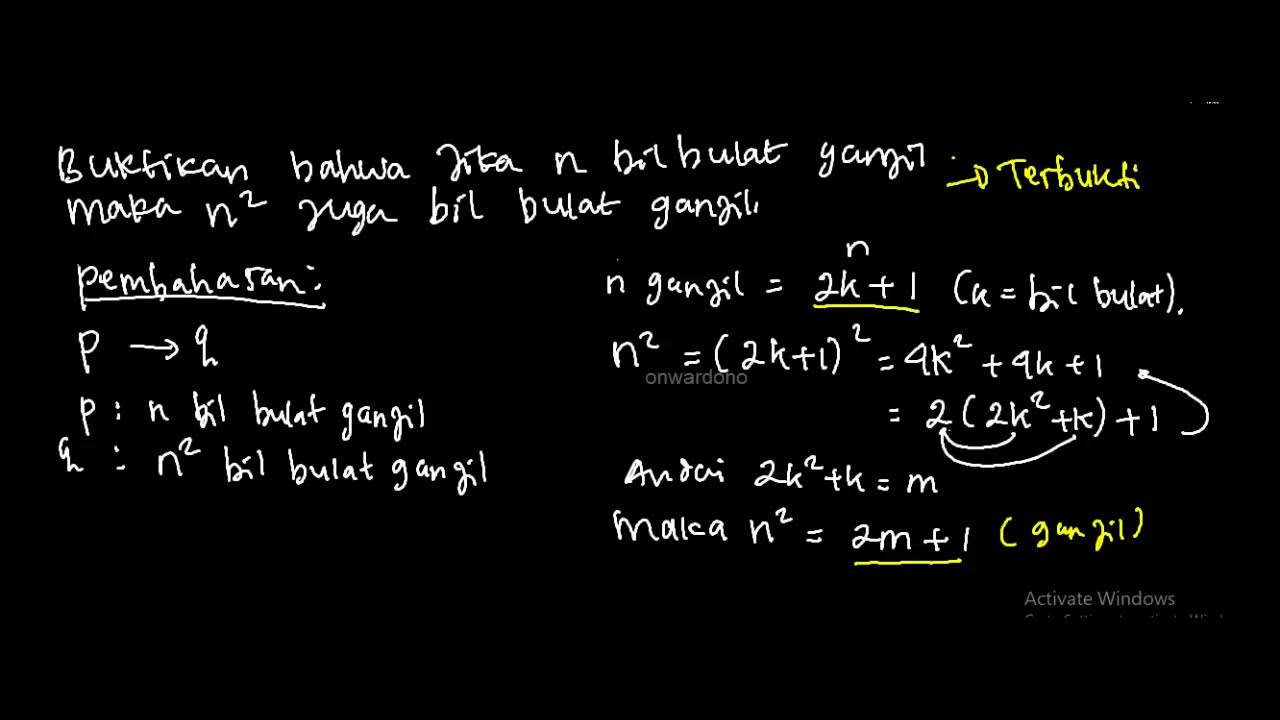 Buktikan bahwa jika n bil bulat ganjil
maka n² juga bil bulat ganjil.
→ Terbukti
pembahasan:
p → q
p : n bil bulat ganjil
q : n² bil bulat ganjil
n
n ganjil = 2k + 1 (k = bil bulat).
n² = (2k+1)² = 4k² + 4k + 1
onwardono
= 2 (2k² + k) + 1
Andai 2k² + k = m
Maka n² = 2m + 1 (ganjil)
Activate Windows